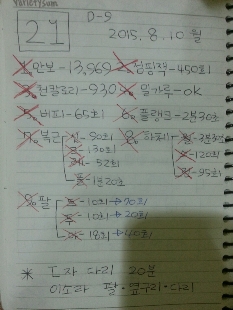 varietysum
D-9
21
2015. 8. 10 월
1. 만보 - 13,969 2. 점핑잭 - 450회
3. 천칼로리 - 930 4. 밀가루 - ok
5. 버피 - 65회 6. 플랭크 - 2분30초
7. 복근 50회 8. 하체 2분30초
130회 120회
52회 95회
1분20초
9. 팔 10회 → 70회
10회 → 20회
18회 → 40회
* 다리 20분
이소라 팔·옆구리·다리